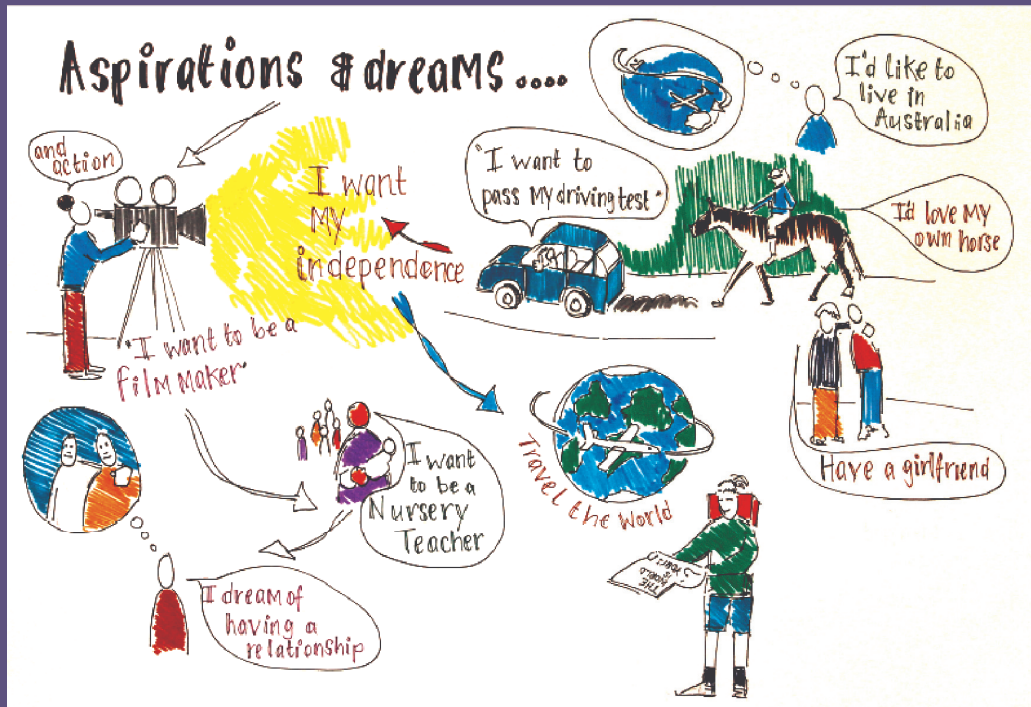 Aspirations & dreams....
and
action
I want
My
independence
"I want to be a
film maker"
"I want to
pass My driving test"
I'd like to
live in
Australia
I'd love My
own horse
Have a girlfriend
I want
to be a
Nursery
Teacher
Travel the World
I dream of
having a
relationship
THE
WORLD
IS
YOURS!